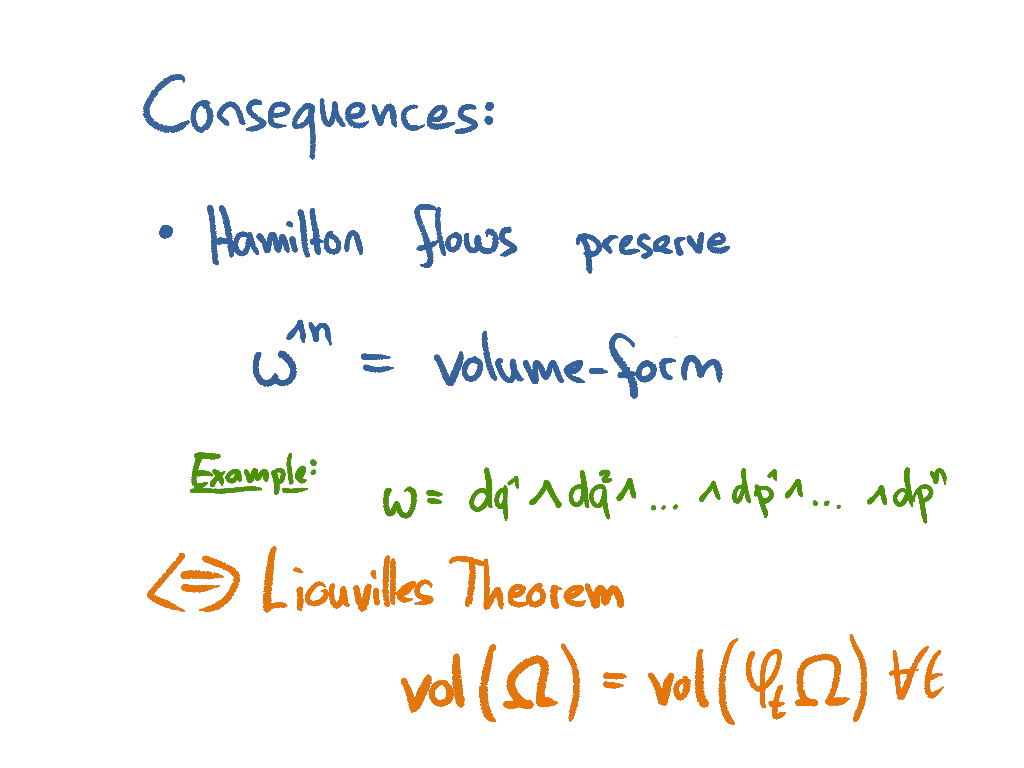 Consequences:
• Hamilton flows preserve
ω^∧n = volume-form
Example: ω = dq¹ ∧ dq² ∧ ... ∧ dp¹ ∧ ... ∧ dpⁿ
<=> Liouvilles Theorem
vol(Ω) = vol(φₜΩ) ∀t